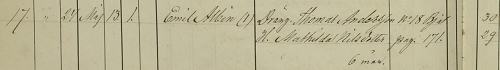 17. " 25 Maj 13 1. Emil Albin (1) Dräng. Thomas Andersson No 18 Bjär 30
H. Mathilda Nilsdotter pag. 171. 29
6 mån.